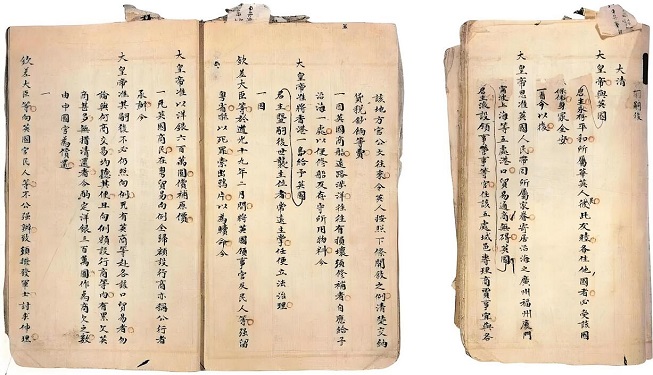 一嗣後
大清
大皇帝與英國
君主永存平和所屬華英人民彼此友睦各住他國者必受該國
保佑身家全安
一自今以後
大皇帝恩准英國人民帶同所屬家眷寄居沿海之廣州福州廈門
寧波上海等五處港口貿易通商無礙英國
君主派設領事管事等官住該五處城邑專理商賈事宜與各
該地方官公文往來令英人按照下條開敘之例清楚交納
貨稅鈔餉等費
一因英國商船遠路涉洋往往有損壞須修補者自應給予
沿海一處以便修船及存守所用物料今
大皇帝准將香港一島給予英國
君主暨嗣後世襲主位者常遠主掌任便立法治理
一因
欽差大臣等於道光十九年二月間將英國領事官及民人等強留
粵省嚇以死罪索出鴉片以為贖命今
大皇帝准以洋銀六百萬圓償補原價
一凡英國商民在粵貿易向例全歸額設行商亦稱公行者
承辦今
大皇帝准其嗣後不必仍照向例凡有英商等赴各該口貿易者勿
論與何商交易均聽其便且向例額設行商等內有累欠英
商甚多無措清還者今酌定洋銀三百萬圓作為商欠之數
由中國官為償還
一
欽差大臣等向英國官民人等不公強辦致須撥發軍士討求伸理